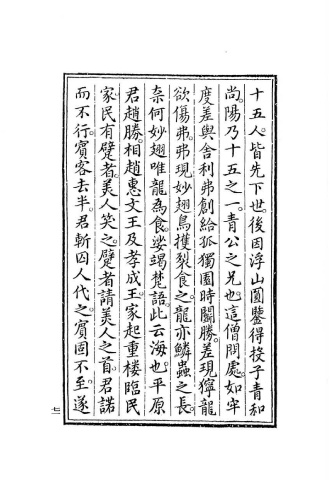 十五人。皆先下世後因浮山圓鑒得投子青和
尚。陽乃十五之一。青公之兄也。這僧問處。如牢
度差與舍利弗創給孤獨園時鬬勝。差現獰龍
欲傷弗。弗現妙翅鳥攫裂食之。龍亦鱗蟲之長。
奈何妙翅唯龍為食。娑竭梵語。此云海也。平原
君趙勝。相趙惠文王及孝成王。家起重樓臨民
家。民有躄者。美人笑之。躄者請美人之首。君諾
而不行。賓客去半。君斬囚人代之。賓固不至。遂
七